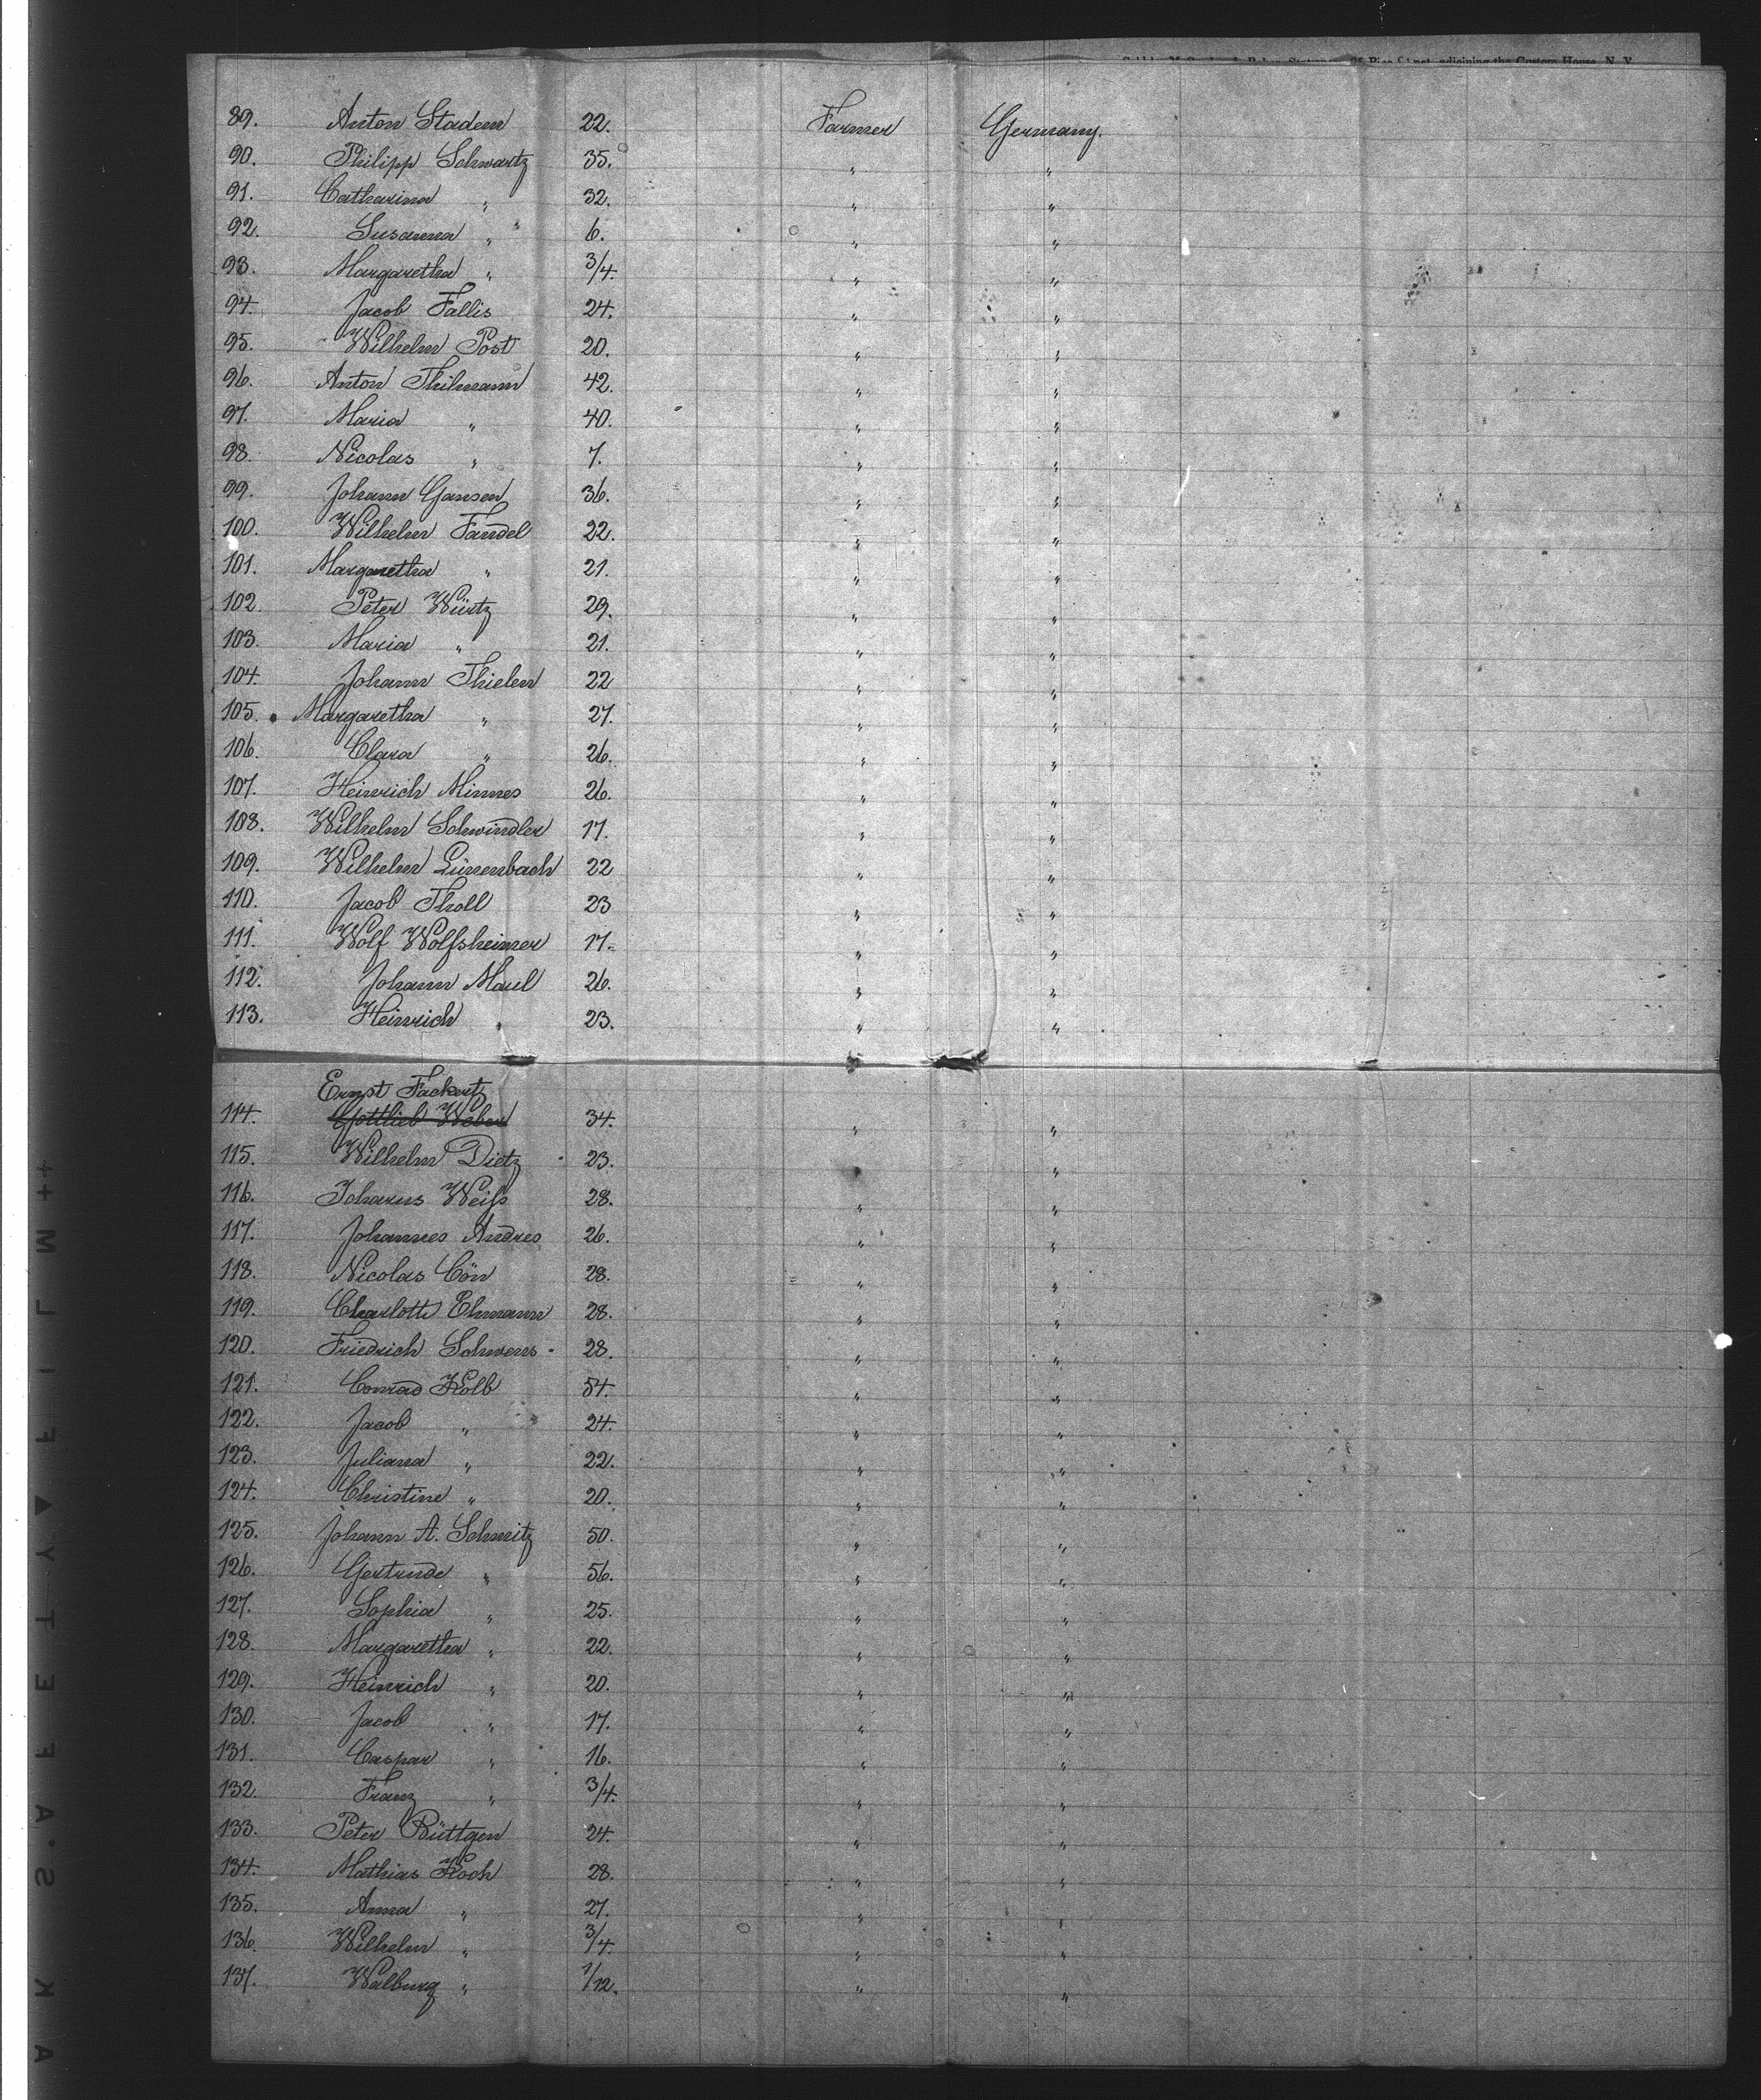 adjoining the Custom House, N. Y.
89. Anton Stadem 22. Farmer Germany.
90. Philipp Schwartz 35. " "
91. Catharina " 32. " "
92. Susanna " 6. " "
93. Margaretha " 3/4. " "
94. Jacob Fallis 24. " "
95. Wilhelm Post 20. " "
96. Anton Thilmann 42. " "
97. Maria " 40. " "
98. Nicolas " 7. " "
99. Johann Gansen 36. " "
100. Wilhelm Fandel 22. " "
101. Margaretha " 21. " "
102. Peter Würtz 29. " "
103. Maria " 21. " "
104. Johann Thielen 22 " "
105. Margaretha " 27. " "
106. Clara " 26. " "
107. Heinrich Minnes 26. " "
108. Wilhelm Schwindler 17. " "
109. Wilhelm Lürrenbach 22 " "
110. Jacob Tholl 23 " "
111. Wolf Wolfsheimer 17. " "
112. Johann Maul 26. " "
113. Heinrich " 23. " "
Ernst Fackert
114. Gottlieb Weber 34. " "
115. Wilhelm Dietz 23. " "
116. Johanns Weiß 28. " "
117. Johannes Andres 26. " "
118. Nicolas Cön 28. " "
119. Charlotte Ehmann 28. " "
120. Friedrich Schwens 28. " "
121. Conrad Kolb 54. " "
122. Jacob " 24. " "
123. Juliana " 22. " "
124. Christine " 20. " "
125. Johann A. Schmitz 50. " "
126. Gertrude " 56. " "
127. Sophia " 25. " "
128. Margaretha " 22. " "
129. Heinrich " 20. " "
130. Jacob " 17. " "
131. Caspar " 16. " "
132. Franz " 3/4. " "
133. Peter Büttgen 24. " "
134. Mathias Koch 28. " "
135. Anna " 27. " "
136. Wilhelm " 3/4. " "
137. Walburg " 1/12. " "